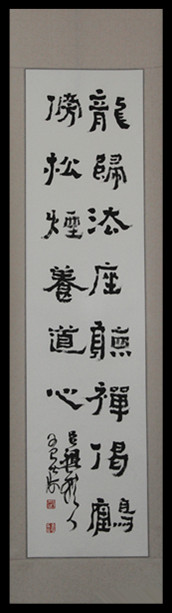 龍歸法座聽禪偈鶴
傍松煙養道心